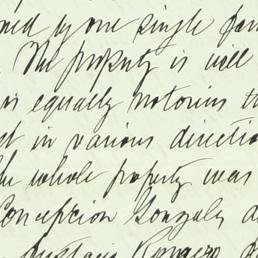 by one single
The property is well
equally notorious
in various directio
whole property was
Concepcion Gonzales
Romero